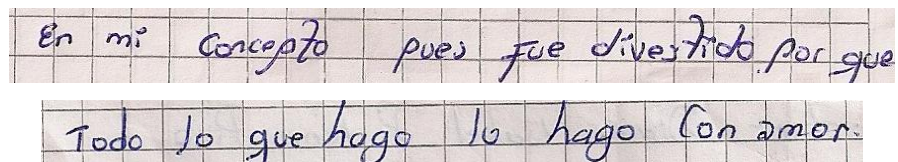 En mi Concepto pues fue divertido por que
Todo lo que hago lo hago Con amor.